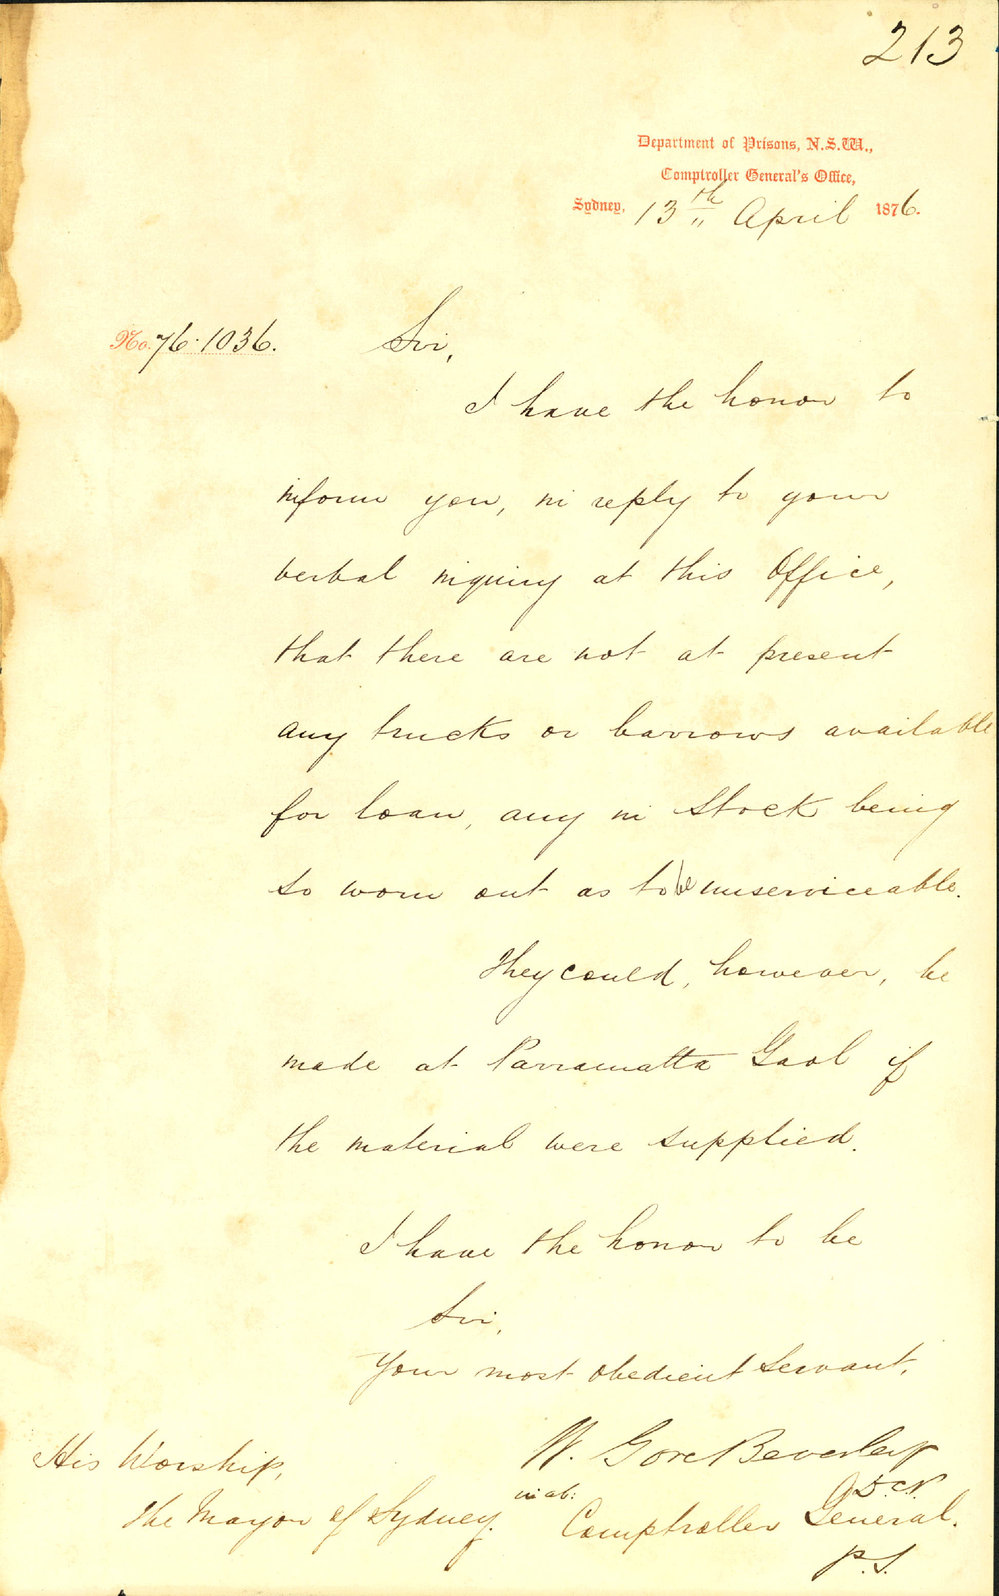 213
Department of Prisons, N.S.W.,
Comptroller General's Office,
Sydney, 13th April 1876.
No. 76.1036.
Sir,
I have the honor to
inform you, in reply to your
verbal inquiry at this Office,
that there are not at present
any trucks or barrows available
for loan, any in Stock being
so worn out as to be unserviceable.
They could, however, be
made at Parramatta Gaol if
the material were supplied.
I have the honor to be
Sir,
Your most obedient Servant,
W. Gore Beverley
in ab:
Comptroller General.
P.S.
His Worship,
The Mayor of Sydney.